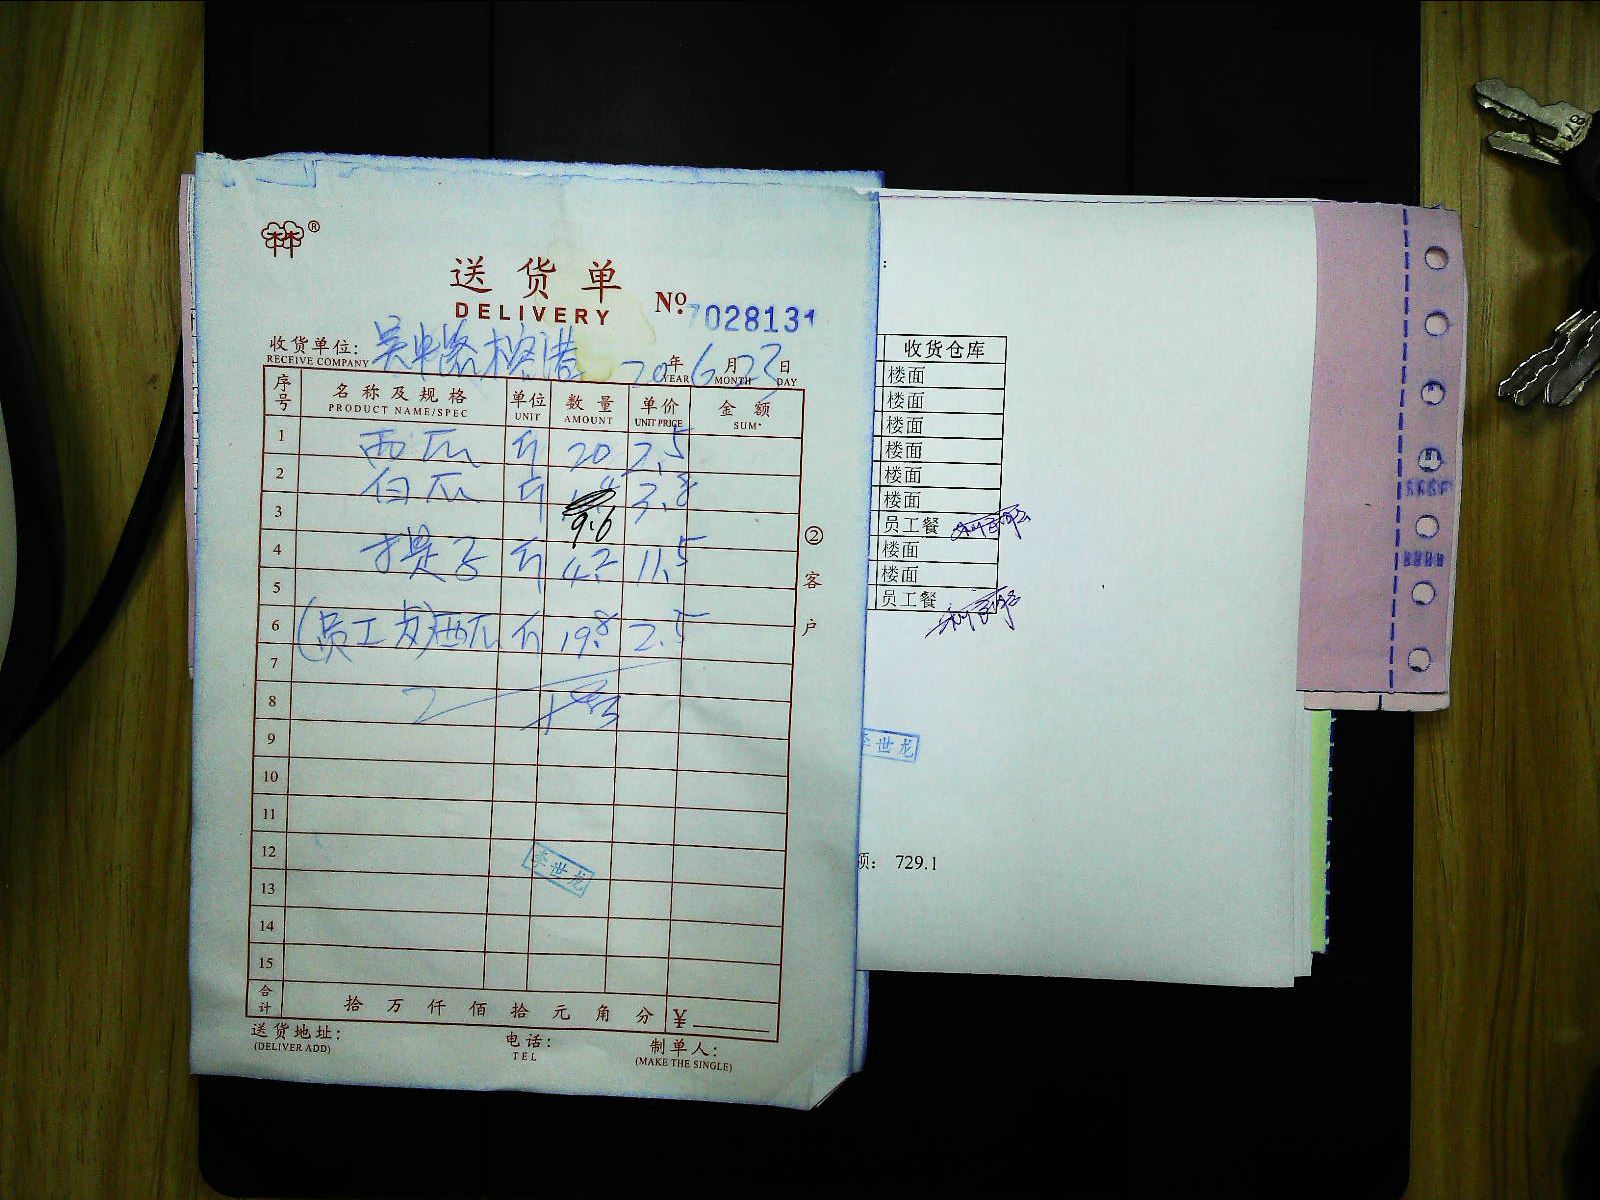 林®
送货单
DELIVERY
No. 7028131
收货单位:
RECEIVE COMPANY
20年6月23日
YEAR MONTH DAY
序号 名称及规格 单位 数量 单价 金额
PRODUCT NAME/SPEC UNIT AMOUNT UNIT PRICE SUM
1 西瓜 斤 20 2.5
2 白瓜 斤 3.8
3 9.6
4 提子 斤 4.2 11.5
5
6 (员工)西瓜 斤 19.8 2.5
7
8
9
10
11
12
李世龙
13
14
15
合计 拾 万 仟 佰 拾 元 角 分 ¥
送货地址: 电话: 制单人:
(DELIVER ADD) TEL (MAKE THE SINGLE)
② 客户
:
收货仓库
楼面
楼面
楼面
楼面
楼面
楼面
员工餐
楼面
楼面
员工餐
李世龙
额: 729.1